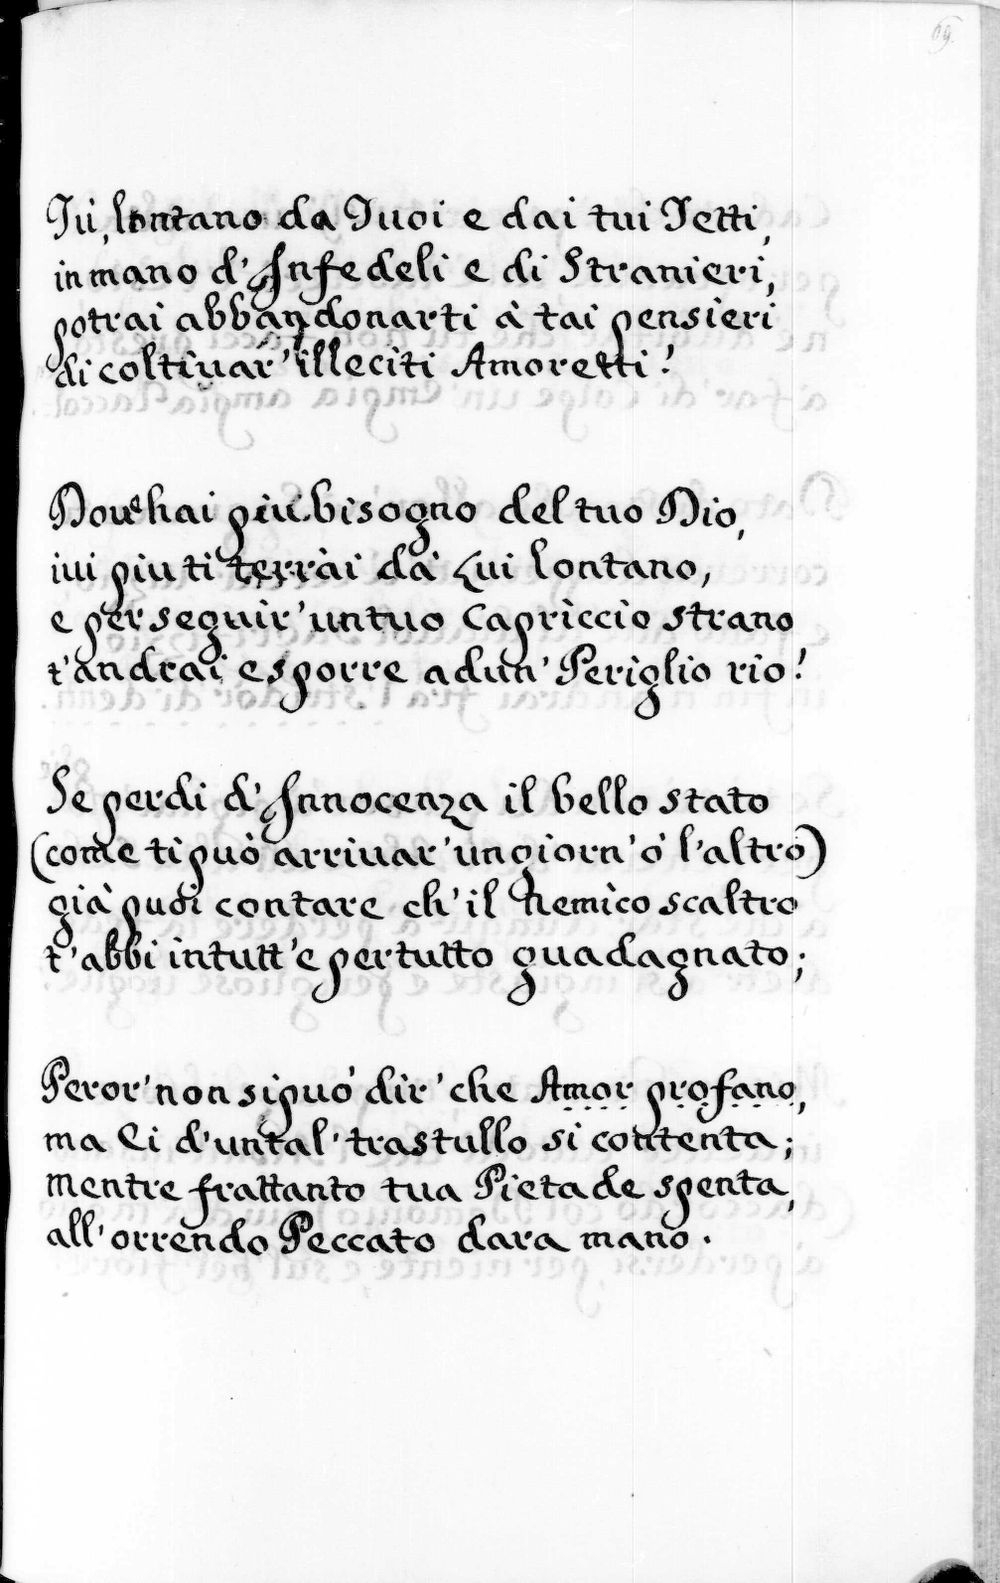 69.
Tù, lontano da Tuoi e dai tui Tetti,
in mano d'Infedeli e di Stranieri,
potrai abbandonarti à tai pensieri
di coltiuar' illeciti Amoretti!
Dou'hai più bisogno del tuo Dio,
iui piu ti terrài da Lui lontano,
e per seguir' un tuo Capriccio strano
t'andrai esporre ad un' Periglio rio!
Se perdi d'Innocenza il bello stato
(come ti può arriuar' un giorn' ò l'altro)
già puoi contare ch'il Nemico scaltro
t'abbi in tutt'e per tutto guadagnato;
Peror' non si può dir' che Amor profano,
ma Ci d'un tal' trastullo si contenta;
mentre frattanto tua Pietade spenta,
all'orrendo Peccato dara mano.